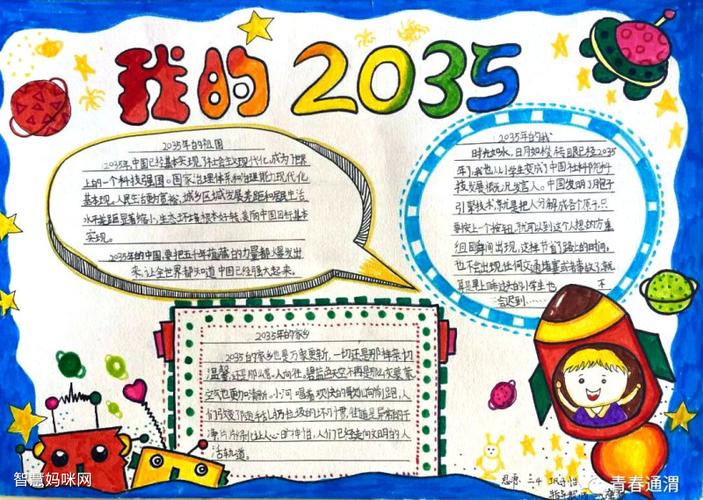 我的2035
2035年的祖国
2035年,中国已经基本实现了社会主义现代化,成为了世
上的一个科技强国。国家治理体系和治理能力现代化
基本现。人民生活更为富裕,城乡区域发展差距和居民生活
水平差距显著缩小,生态环境根本好转,美丽中国目标基本
实现。
2035年的中国,要把五千年蕴藏的力量都爆发出
来,让全世界都知道中国已经强大起来。
2035年的我
时光如水,日月如梭,转眼已经2035
年了,我也从小学生变成了中国社
科技发展 发言人。中国发明了
引擎技术,就是把人分解成各个原子,只
要按上一个按钮,就可以到这个人想的方
组回瞬间出现,这样节约了路上的时间,
也不会出现任何交通堵塞或者事故了,就
耳贝早上 的小学生也 不
会迟到……
2035年的家乡
2035的家乡也是万家更新,一切还是那样亲切
温馨,还是那么令人向往。碧蓝的天空不再是那么灰蒙蒙
空气也更加清新。小河唱着欢快的歌 向前跑,人
们 改 乱扔垃圾的坏习惯,
人们已经走向文明的人
活轨道。
智慧妈咪网
青春通渭